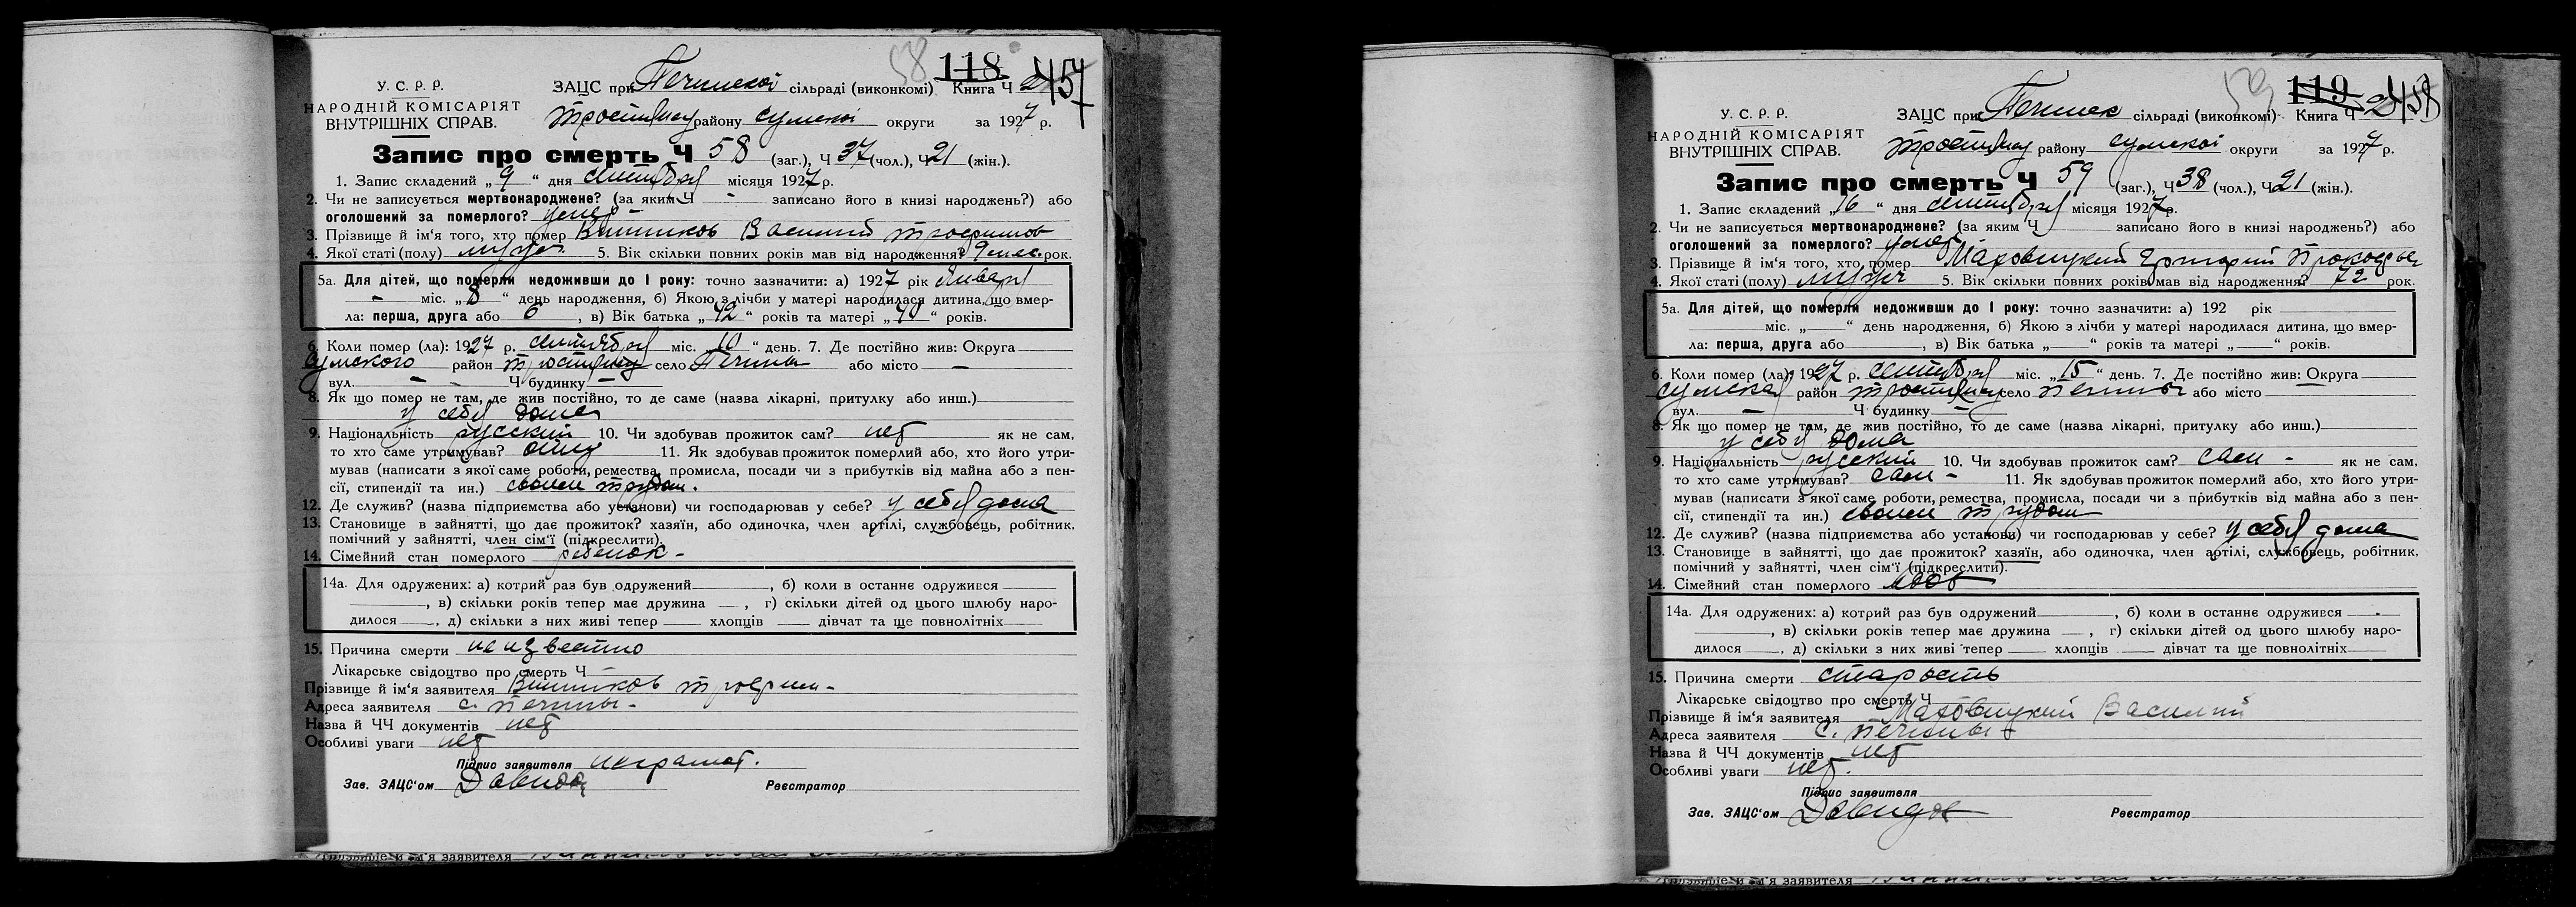 58 118 457
У. С. Р. Р. ЗАЦС при Печинской сільраді (виконкомі) Книга Ч 2
НАРОДНІЙ КОМІСАРІЯТ
ВНУТРІШНІХ СПРАВ. району сумской округи за 1927 р.
Запис про смерть Ч 58 (заг.), Ч 37 (чол.), Ч 21 (жін.).
1. Запис складений „ 9 “ дня сентября місяця 1927 р.
2. Чи не записується мертвонароджене? (за яким Ч – записано його в книзі народжень?) або
оголошений за померлого? умер –
3. Прізвище й ім‘я того, хто помер Василий Трофимов
4. Якої статі (полу) муж. 5. Вік скільки повних років мав від народження? 9 мес. рок.
5а. Для дітей, що померли недоживши до 1 року: точно зазначити: а) 1927 рік Января
– міс. „ 8 “ день народження, б) Якою з лічби у матері народилася дитина, що вмер-
ла: перша, друга або 6 , в) Вік батька „ 42 “ років та матері „ 40 “ років.
6. Коли помер (ла): 1927 р. сентября міс. „ 10 “ день. 7. Де постійно жив: Округа
сумского район село Печины або місто –
вул. – Ч будинку –
8. Як що помер не там, де жив постійно, то де саме (назва лікарні, притулку або инш.)
у себя дома
9. Національність русский 10. Чи здобував прожиток сам? нет як не сам,
то хто саме утримував? отец 11. Як здобував прожиток померлий або, хто його утри-
мував (написати з якої саме роботи, ремества, промисла, посади чи з прибутків від майна або з пен-
сії, стипендії та ин.) своим трудом.
12. Де служив? (назва підприємства або установи) чи господарював у себе? у себя дома
13. Становище в зайнятті, що дає прожиток? хазяїн, або одиночка, член артілі, службовець, робітник,
помічний у зайнятті, член сім‘ї (підкреслити).
14. Сімейний стан померлого ребенок –
14а. Для одружених: а) котрий раз був одружений , б) коли в останнє одружився
, в) скільки років тепер має дружина , г) скільки дітей од цього шлюбу наро-
дилося , д) скільки з них живі тепер хлопців дівчат та ще повнолітніх
15. Причина смерти неизвестно
Лікарське свідоцтво про смерть Ч
Прізвище й ім‘я заявителя Трофим –
Адреса заявителя с. Печины –
Назва й ЧЧ документів нет
Особливі уваги нет
Підпис заявителя неграмот.
Зав. ЗАЦС‘ом Давидов Реєстратор
59 119 458
У. С. Р. Р. ЗАЦС при сільраді (виконкомі) Книга Ч 2
НАРОДНІЙ КОМІСАРІЯТ
ВНУТРІШНІХ СПРАВ. району сумской округи за 1927 р.
Запис про смерть Ч 59 (заг.), Ч 38 (чол.), Ч 21 (жін.).
1. Запис складений „ 16 “ дня сентября місяця 1927 р.
2. Чи не записується мертвонароджене? (за яким Ч записано його в книзі народжень?) або
оголошений за померлого? умер
3. Прізвище й ім‘я того, хто помер Маховицкий Григорий
4. Якої статі (полу) мужч 5. Вік скільки повних років мав від народження? 72 рок.
5а. Для дітей, що померли недоживши до 1 року: точно зазначити: а) 192 рік
міс. „ “ день народження, б) Якою з лічби у матері народилася дитина, що вмер-
ла: перша, друга або , в) Вік батька „ “ років та матері „ “ років.
6. Коли помер (ла): 1927 р. сентября міс. „ 15 “ день. 7. Де постійно жив: Округа
сумская район село Печины або місто
вул. – Ч будинку –
8. Як що помер не там, де жив постійно, то де саме (назва лікарні, притулку або инш.)
у себя дома
9. Національність русский 10. Чи здобував прожиток сам? сам – як не сам,
то хто саме утримував? сам – 11. Як здобував прожиток померлий або, хто його утри-
мував (написати з якої саме роботи, ремества, промисла, посади чи з прибутків від майна або з пен-
сії, стипендії та ин.) своим трудом
12. Де служив? (назва підприємства або установи) чи господарював у себе? у себя дома
13. Становище в зайнятті, що дає прожиток? хазяїн, або одиночка, член артілі, службовець, робітник,
помічний у зайнятті, член сім‘ї (підкреслити).
14. Сімейний стан померлого вдов
14а. Для одружених: а) котрий раз був одружений , б) коли в останнє одружився
, в) скільки років тепер має дружина , г) скільки дітей од цього шлюбу наро-
дилося , д) скільки з них живі тепер хлопців дівчат та ще повнолітніх
15. Причина смерти старость
Лікарське свідоцтво про смерть Ч
Прізвище й ім‘я заявителя Маховицкий Василий
Адреса заявителя с. Печины
Назва й ЧЧ документів нет
Особливі уваги нет.
Підпис заявителя
Зав. ЗАЦС‘ом Давидов Реєстратор